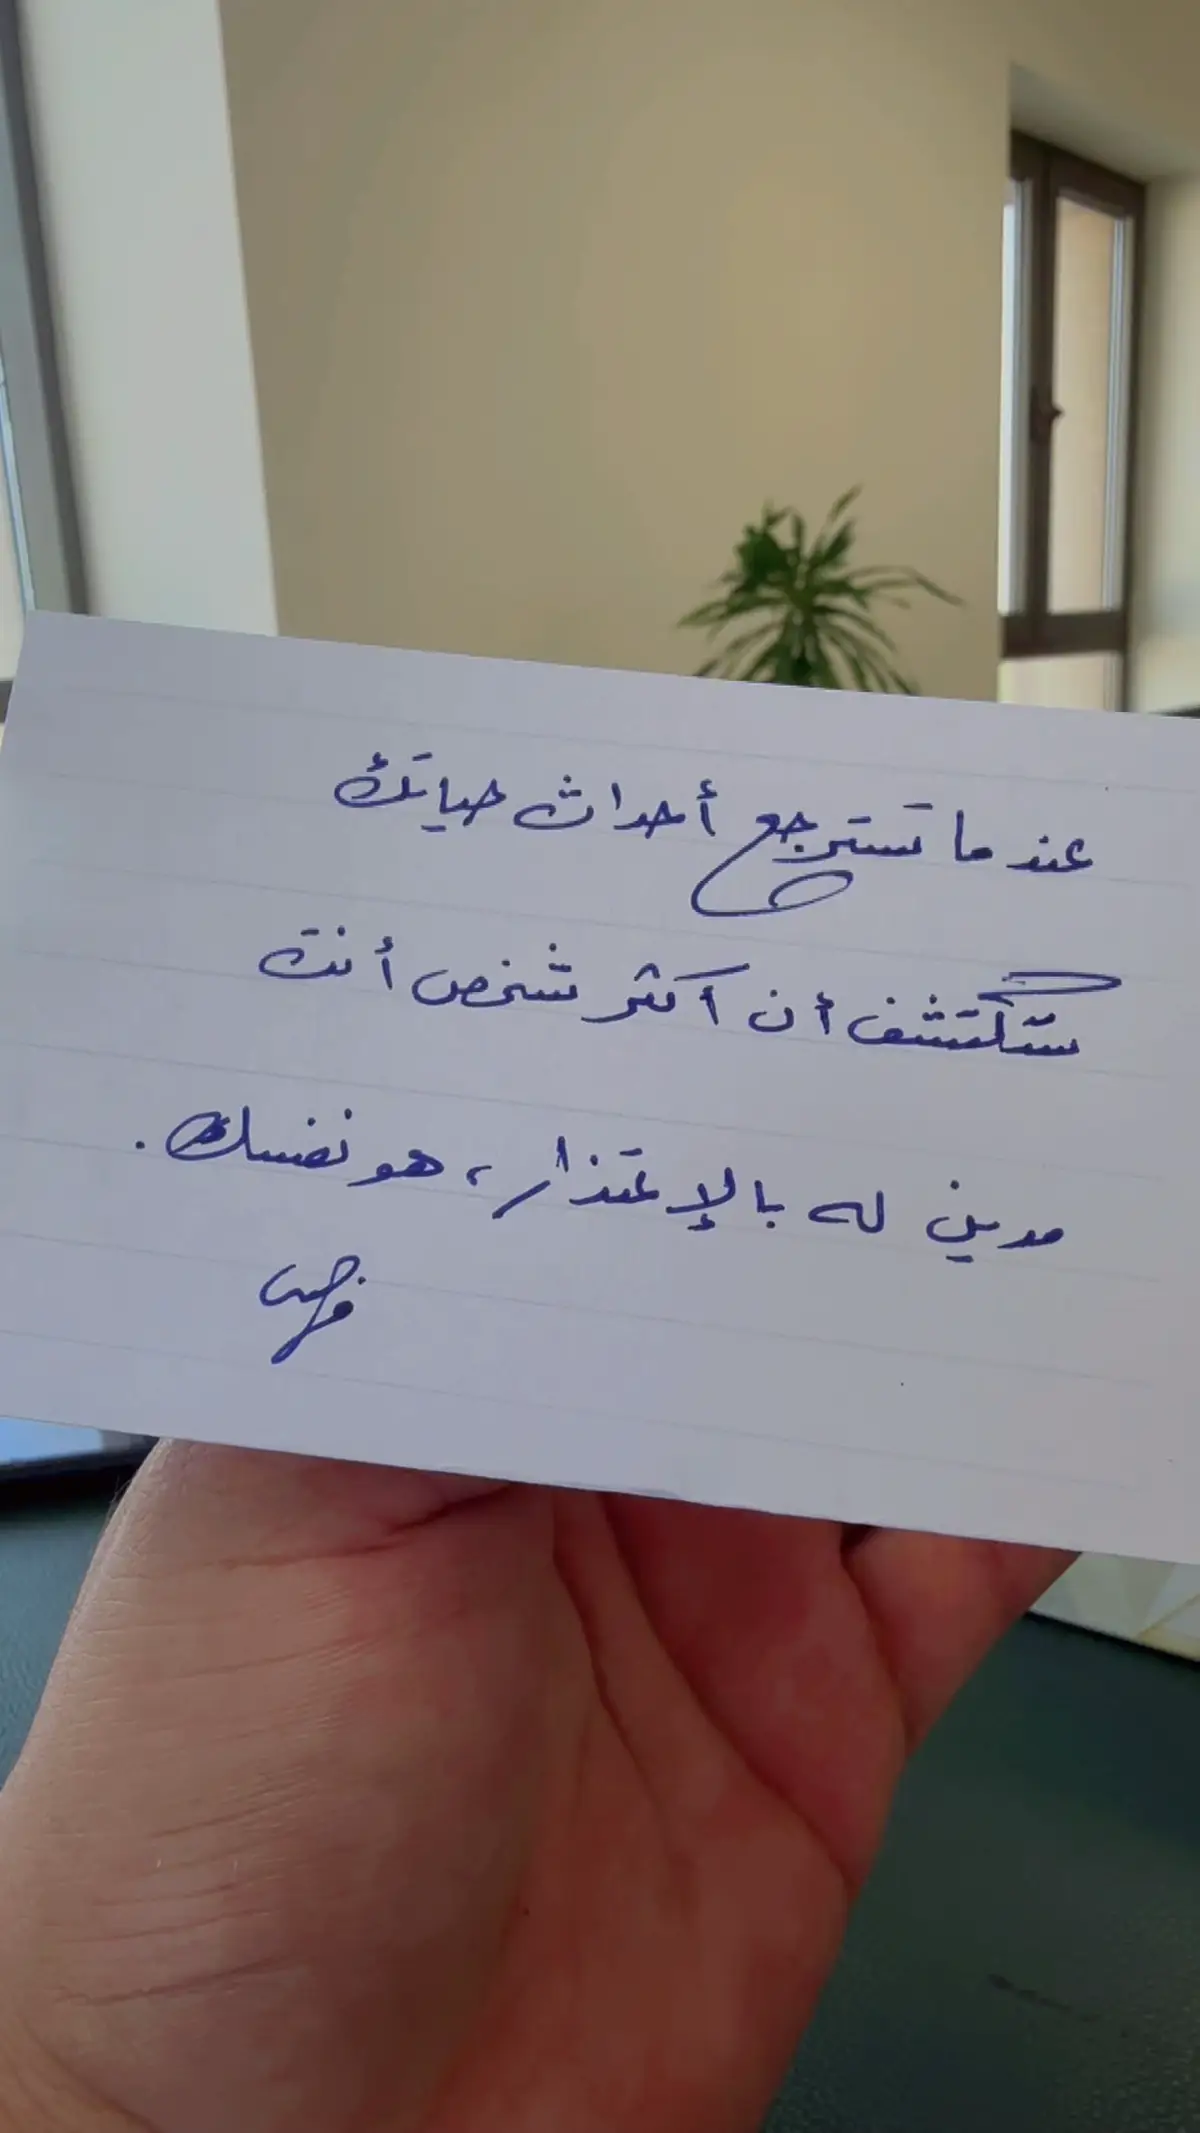 عندما تسترجع أحداث حياتك
ستكتشف أن أكثر شخص أنت
مدين له بالإعتذار، هو نفسك.